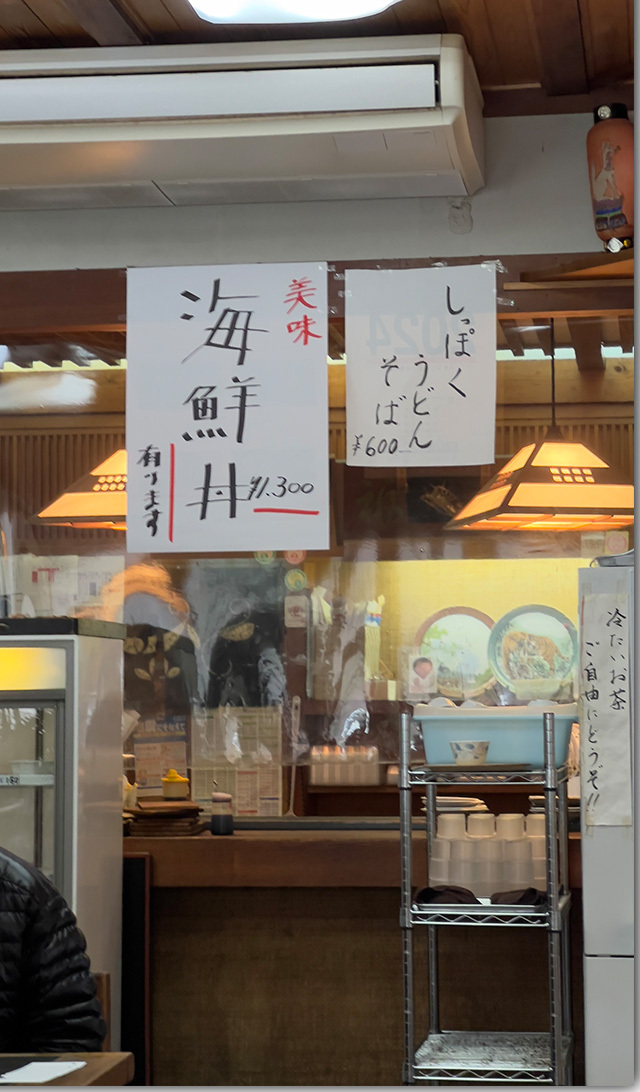 美味
海鮮丼
¥1.300
有ります
しっぽく
うどん
そば
¥600
冷たいお茶
ご自由にどうぞ!!
2024